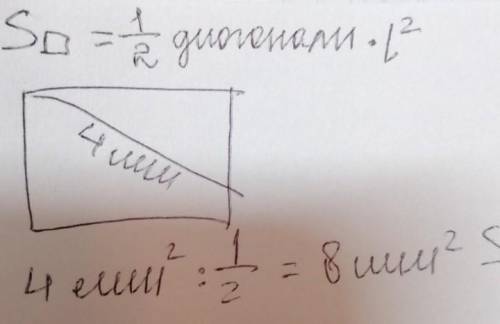 S▭ = 1/2 диогонали · l²
4 мм
4 мм² : 1/2 = 8 мм² S